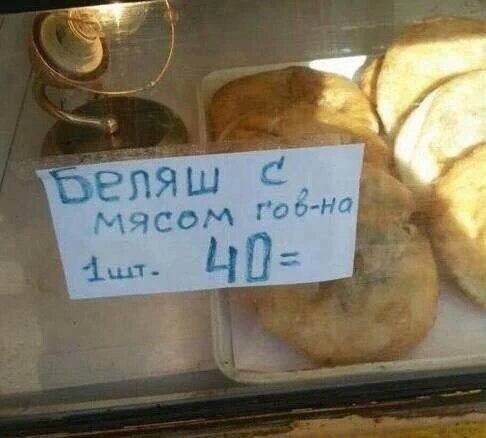 Беляш с
мясом гов-на
1шт. 40=